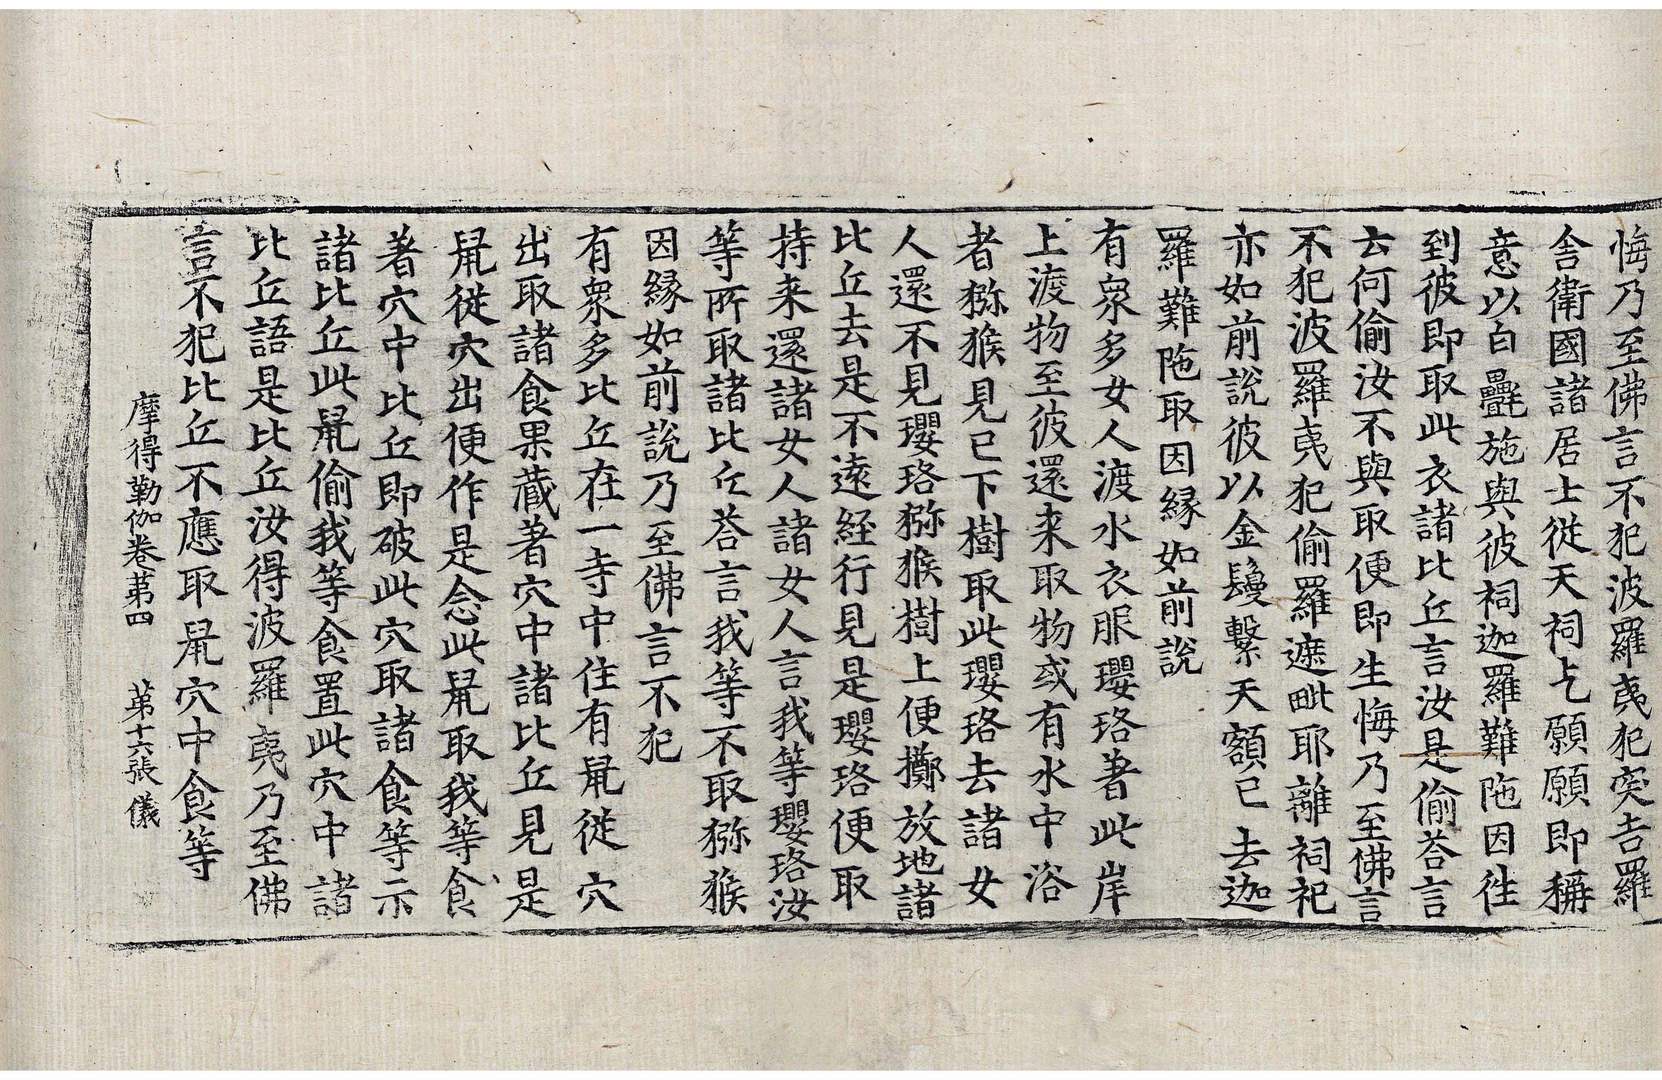 悔乃至佛言不犯波羅夷犯突吉羅
舎衛國諸居士從天祠乞願願即稱
意以白㲲施與彼祠迦羅難陁因徃
到彼即取此衣諸比丘言汝是偷荅言
云何偷汝不與取便即生悔乃至佛言
不犯波羅夷犯偷羅遮毗耶離祠祀
亦如前說彼以金鬘繫天額已去迦
羅難陁取因縁如前說
有衆多女人渡水衣服瓔珞著此岸
上渡物至彼還来取物或有水中浴
者猕猴見已下樹取此瓔珞去諸女
人還不見瓔珞猕猴樹上便擲放地諸
比丘去是不遠経行見是瓔珞便取
持来還諸女人諸女人言我等瓔珞汝
等所取諸比丘荅言我等不取猕猴
因縁如前說乃至佛言不犯
有衆多比丘在一寺中住有鼠從穴
出取諸食果藏著穴中諸比丘見是
鼠從穴出便作是念此鼠取我等食
著穴中比丘即破此穴取諸食等示
諸比丘此鼠偷我等食置此穴中諸
比丘語是比丘汝得波羅夷乃至佛
言不犯比丘不應取鼠穴中食等
摩得勒伽卷苐四 苐十六張 儀